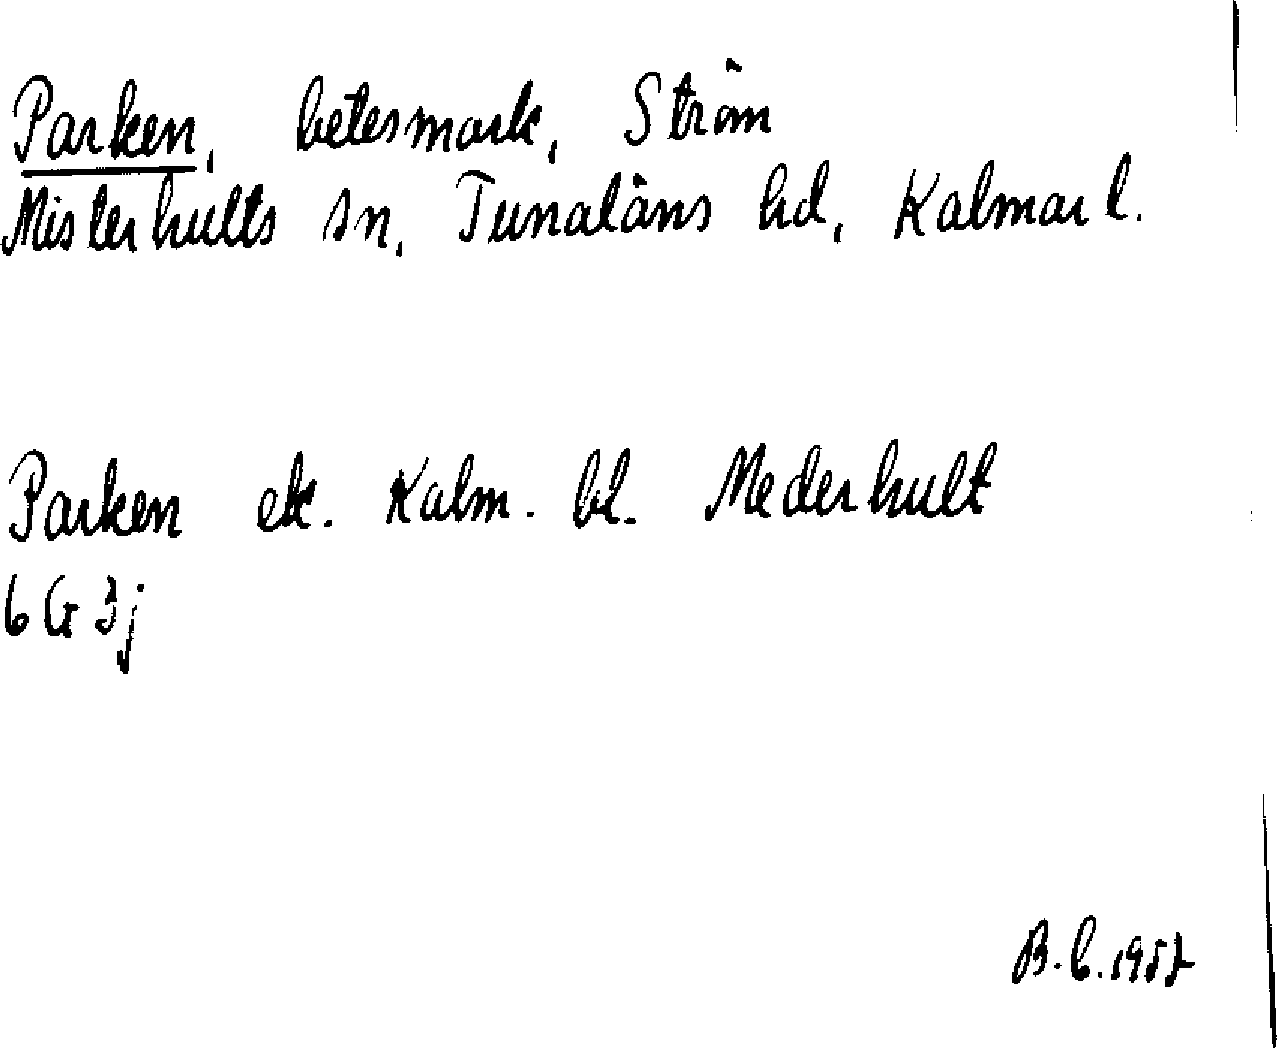 Parken, betesmark, Ström
Misterhults sn, Tunaläns hd, Kalmar l.
Parken ek. Kalm. bl. Mederhult
6G3j